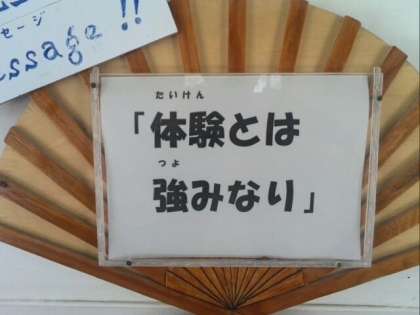 セージ
essage !!
たいけん
「体験とは
つよ
強みなり」